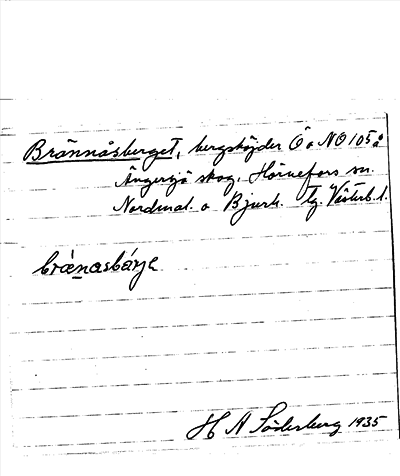 Brännåsberget, bergshöjder Ö o NO 105 å
Ängersjö skog, Hörnefors sn.
Nordmal. o Bjurh. tg. Västerb. l.
brä́nasbárje
H A Söderberg 1935